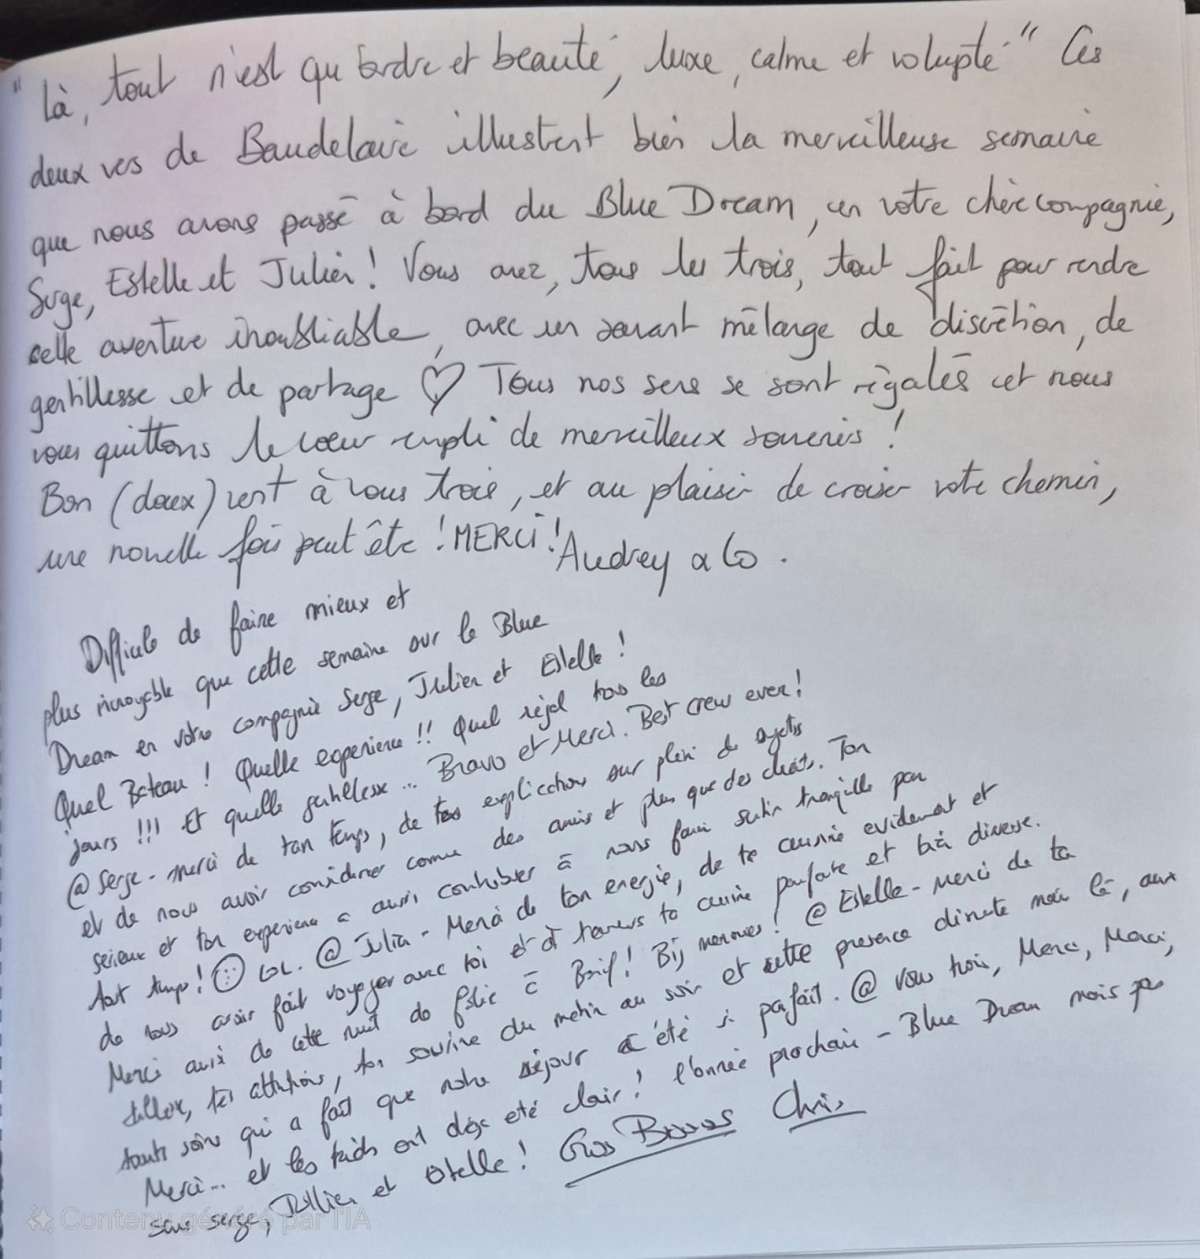 "Là, tout n'est qu'ordre et beauté, luxe, calme et volupté." Ces
deux vers de Baudelaire illustrent bien la merveilleuse semaine
que nous avons passé à bord du Blue Dream, en votre chère compagnie,
Serge, Estelle et Julien! Vous avez, tous les trois, tout fait pour rendre
cette aventure inoubliable, avec un savant mélange de discrétion, de
gentillesse et de partage ♡ Tous nos sens se sont régalés et nous
vous quittons le coeur empli de merveilleux souvenirs!
Bon (doux) vent à vous trois, et au plaisir de croiser votre chemin,
une nouvelle fois peut être! MERCI! Audrey & Co.
Difficile de faire mieux et
plus incroyable que cette semaine sur le Blue
Dream en votre compagnie Serge, Julien et Estelle!
Quel Bateau! Quelle experience!! Quel régal tous les
jours!!! Et quelle gentillesse... Bravo et Merci. Best crew ever!
@ Serge - merci de ton temps, de tes explications sur plein de sujets
et de nous avoir considerer comme des amis et plus que des clients. Ton
serieux et ton experience a aussi contribuer à nous faire sentir tranquille par
tout temps! ☺ LOL. @ Julien - Merci de ton energie, de ta cuisine evidement et
de nous avoir fait voyager avec toi et à travers ta cuisine parfaite et très diverse.
Merci aussi de cette nuit de folie à! @ Estelle - Merci de ta
, tes attentions, ton sourire du matin au soir et cette presence discrete mais là, aux
toute soins qui a fait que notre séjour a été si parfait. @ vous trois, Merci, Merci,
Merci... et les kids ont déjà été clair! l'année prochaine - Blue Dream mais pas
sans Serge, Julien et Estelle! Gros Bisous Chris
Contenu généré par l'IA